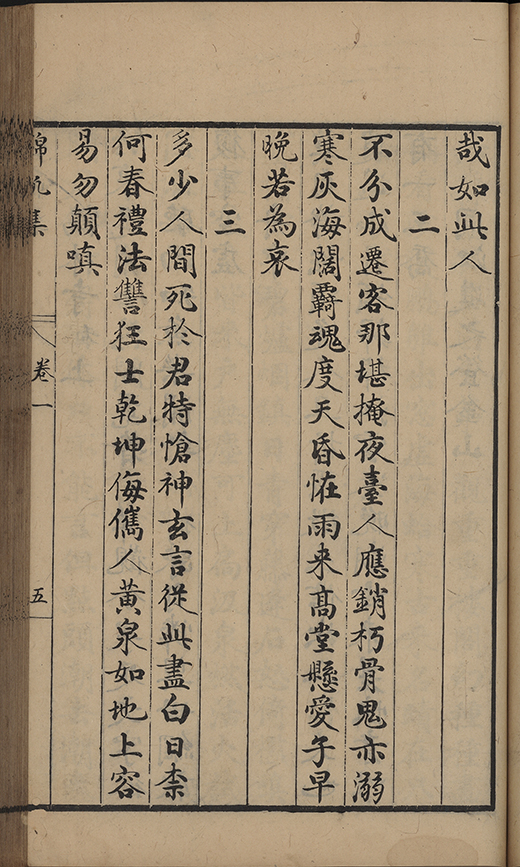 哉如此人
二
不分成遷客那堪掩夜臺人應銷朽骨鬼亦溺
寒灰海闊覊魂度天昏恠雨来髙堂懸愛子早
晚若為哀
三
多少人間死於君特愴神玄言從此盡白日柰
何春禮法讐狂士乾坤侮儁人黃泉如地上容
易勿顛嗔
集
卷一
五